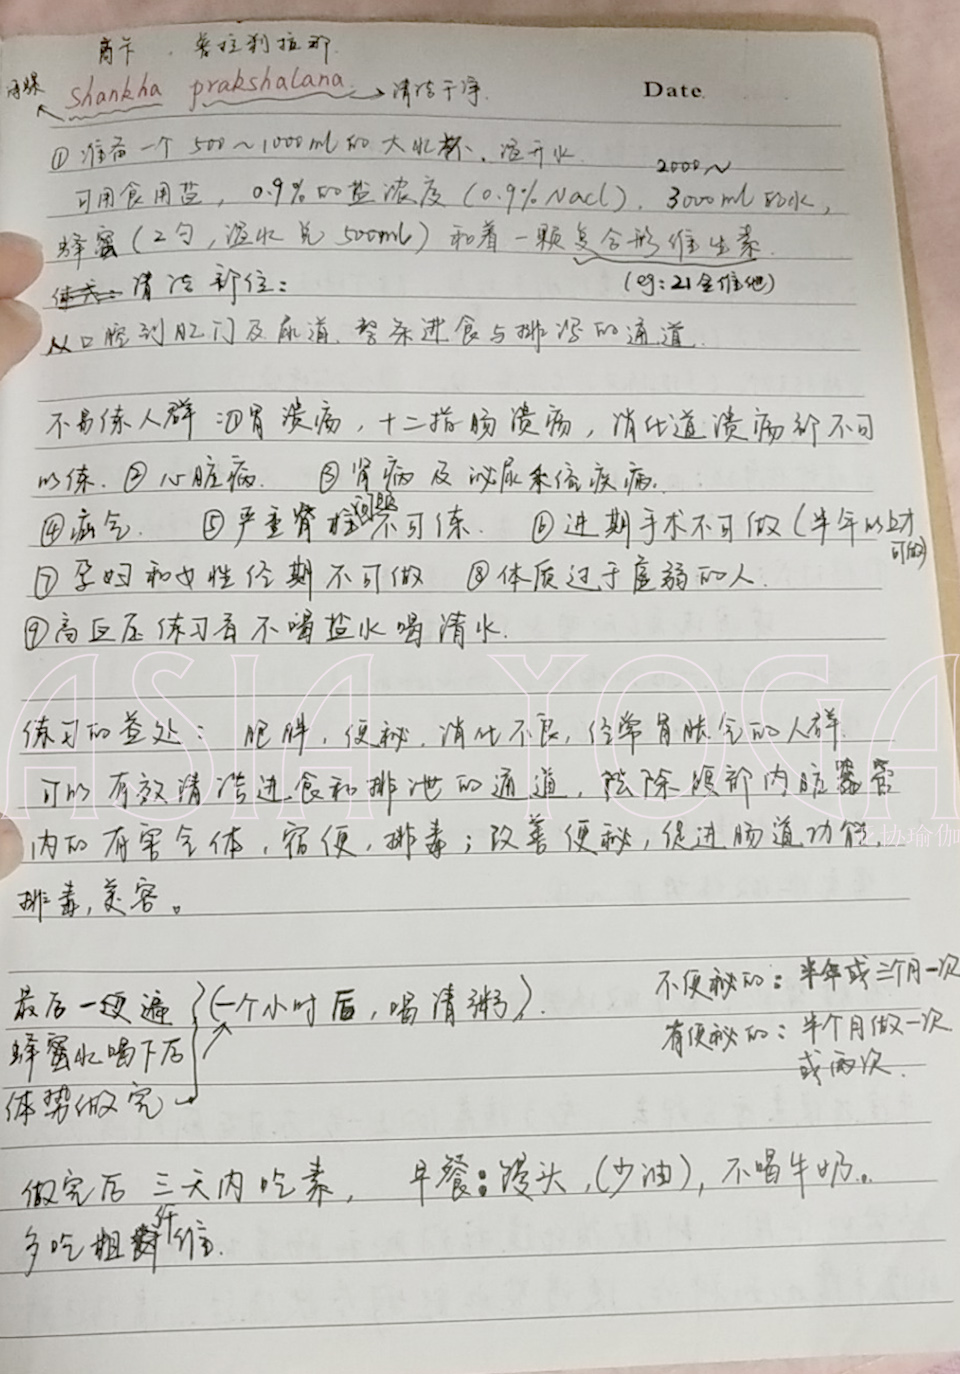 商卡 . 普拉刹拉那
海螺 shankha prakshalana 清洁干净. Date
①准备一个500~1000ml的大水杯、温开水.
可用食用盐, 0.9%的盐浓度(0.9% Nacl). 2000~3000ml的水,
蜂蜜(2勺,温水兑500ml)和着一颗复合形维生素.
(eg:21金维他)
清洁部位:
从口腔到肛门及尿道.整条进食与排泻的通道.
不易练人群:①胃溃疡,十二指肠溃疡,消化道溃疡都不可
以练. ②心脏病. ③肾病及泌尿系统疾病.
④疝气. ⑤严重脊柱问题不可练. ⑥进期手术不可做(半年以上才可做)
⑦孕妇和女性经期不可做 ⑧体质过于虚弱的人.
⑨高血压练习者不喝盐水喝清水.
练习的益处: 肥胖,便秘,消化不良,经常胃胀气的人群.
可以有效清洁进食和排泄的通道,祛除腹部内脏器官
内的有害气体,宿便,排毒;改善便秘,促进肠道功能,
排毒,美容。
最后一遍
蜂蜜水喝下后
体势做完
(一个小时后,喝清粥).
不便秘的:半年或三个月一次
有便秘的:半个月做一次
或两次.
做完后三天内吃素, 早餐:馒头,(少油),不喝牛奶.
多吃粗纤维.
ASIA YOGA
协瑜伽